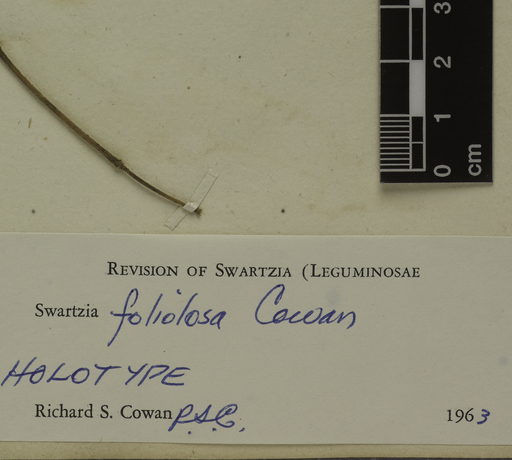 3
2
1
0
cm
REVISION OF SWARTZIA (LEGUMINOSAE
Swartzia foliolosa Cowan
HOLOTYPE
Richard S. Cowan R.S.C. 1963